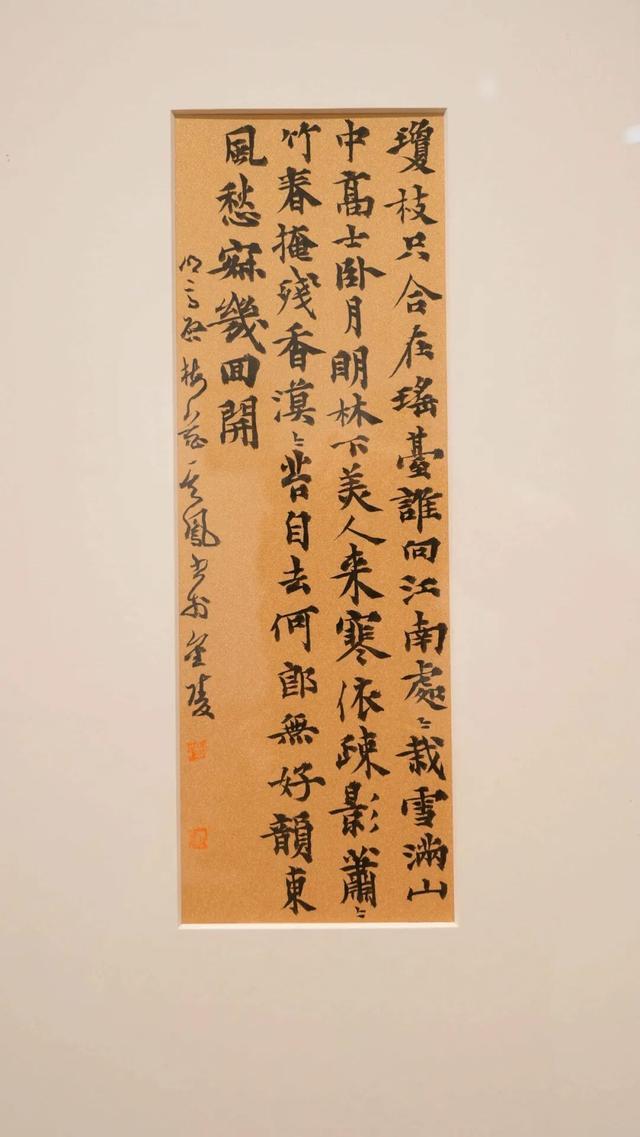 瓊枝只合在瑤臺誰向江南處〻栽雪滿山
中高士卧月明林下美人来寒依疎影蕭〻
竹春掩殘香漠〻苔自去何郎無好韻東
風愁寂幾回開
明高啓梅花 鳳书於金陵